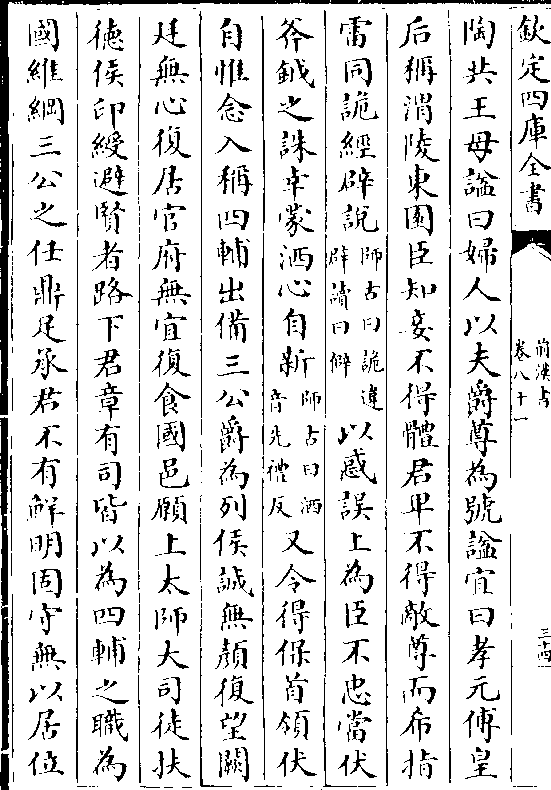 欽定四庫全書
前漢書
卷八十一
三十四
陶共王母謚曰婦人以夫爵尊為號謚宜曰孝元傅皇
后稱渭陵東園臣知妾不得體君卑不得敵尊而希指
雷同詭經辟說師古曰詭違辟讀曰僻以惑誤上為臣不忠當伏
斧鉞之誅幸蒙洒心自新師古曰洒音先禮反又令得保首領伏
自惟念入稱四輔出備三公爵為列侯誠無顏復望闕
廷無心復居官府無宜復食國邑願上太師大司徒扶
徳侯印綬避賢者路下君章有司皆以為四輔之職為
國維綱三公之任鼎足承君不有鮮明固守無以居位